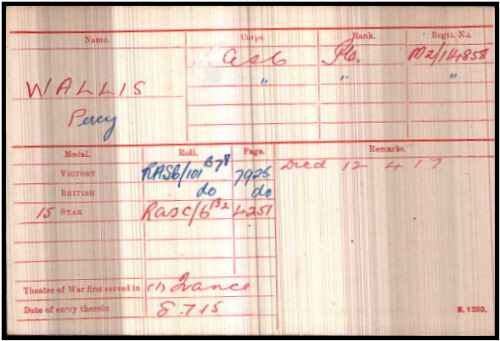 Name. Corps. Rank. Regtl. No.
ASC Pte. M2/114858
WALLIS " " "
Percy
Medal. Roll. Page. Remarks.
VICTORY RASC/101 B78 7925 Died 12 4 17
BRITISH do do
15 STAR RASC/6 B2 4251
Theatre of War first served in (1) France
Date of entry therein 8.7.15
K. 1380.